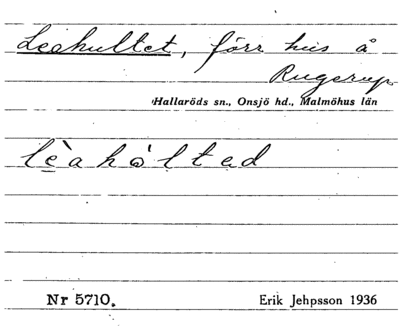 Leahultet, förr hus å
Rugerup
Hallaröds sn., Onsjö hd., Malmöhus län
lèahòltad
Nr 5710.
Erik Jehpsson 1936